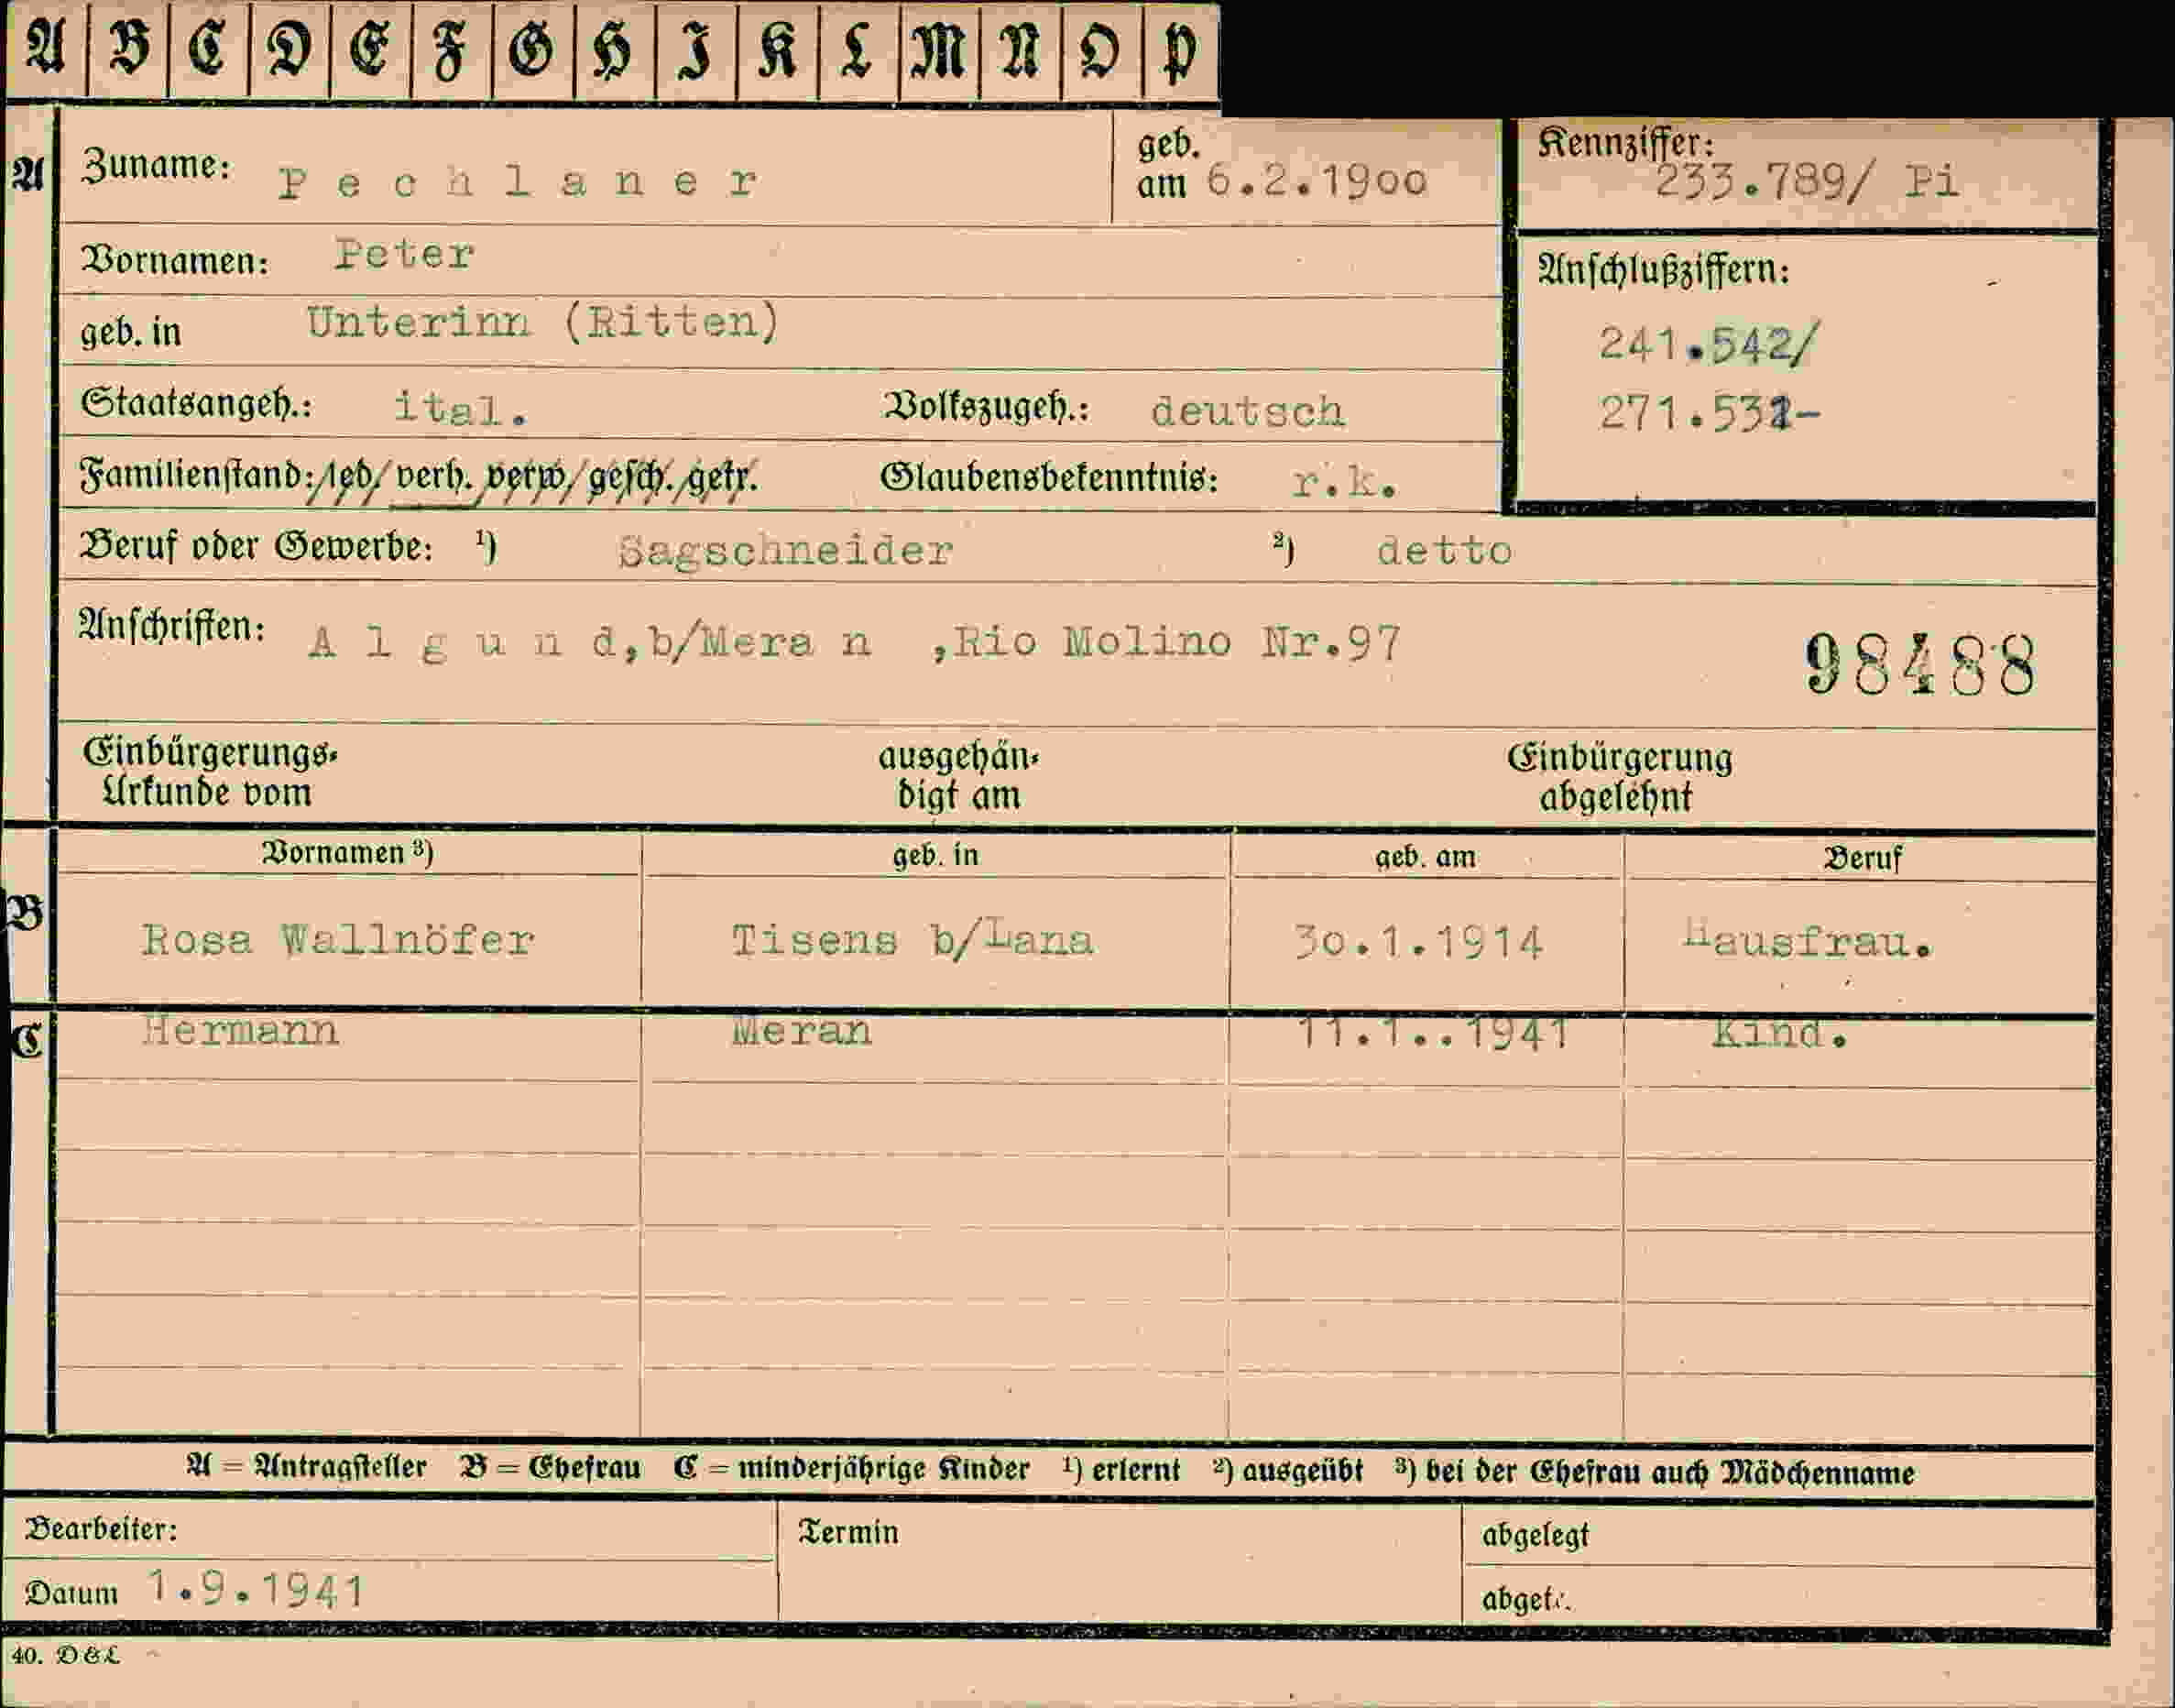 A B C D E F G H I K L M N O P
A Zuname: Pechlaner geb. am 6.2.1900 Kennziffer: 233.789/ Pi
Vornamen: Peter
geb. in Unterinn (Ritten) Anschlußziffern:
241.542/
Staatsangeh.: ital. Volkszugeh.: deutsch 271.531-
Familienstand: led/ verh. verw/ gesch. getr. Glaubensbekenntnis: r.k.
Beruf oder Gewerbe: ¹) Sagschneider ²) detto
Anschriften: Algund, b/Meran ,Rio Molino Nr.97
98488
Einbürgerungs- ausgehän- Einbürgerung
Urkunde vom digt am abgelehnt
Vornamen ³) geb. in geb. am Beruf
B Rosa Wallnöfer Tisens b/Lana 30.1.1914 Hausfrau.
C Hermann Meran 11.1..1941 Kind.
A = Antragsteller B = Ehefrau C = minderjährige Kinder ¹) erlernt ²) ausgeübt ³) bei der Ehefrau auch Mädchenname
Bearbeiter: Termin abgelegt
Datum 1.9.1941
40. D&L